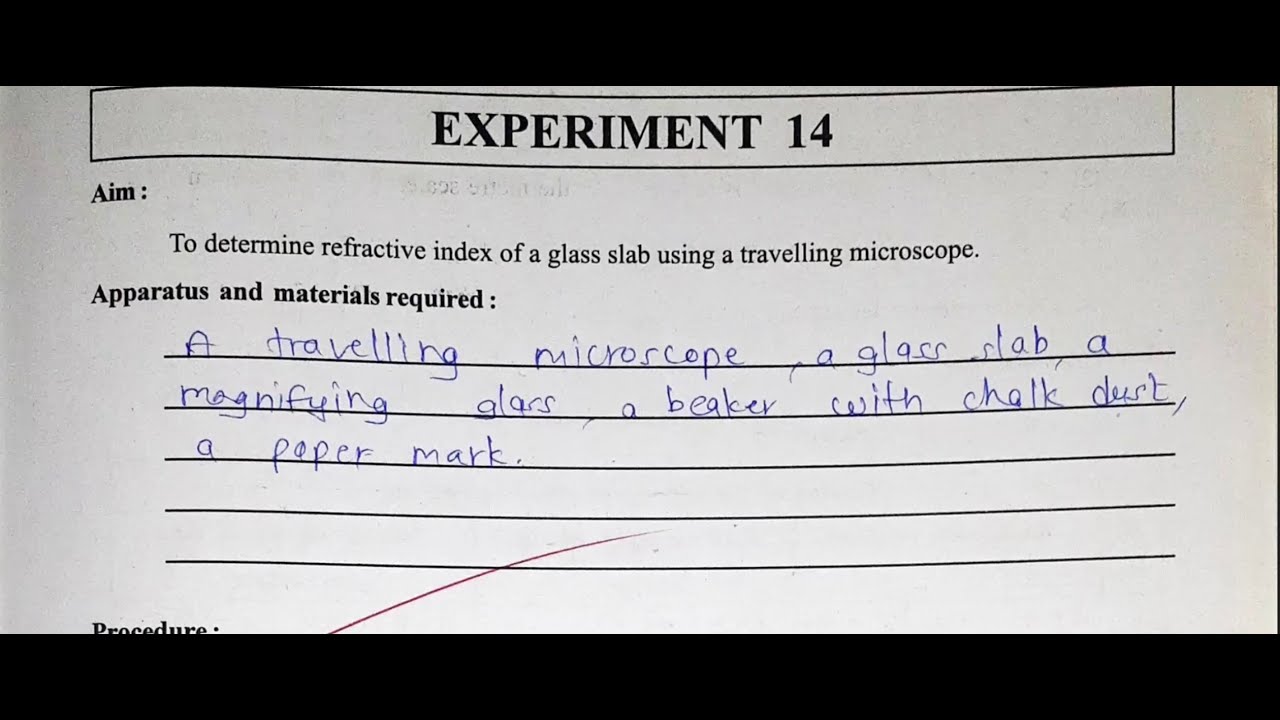 EXPERIMENT 14
Aim :
To determine refractive index of a glass slab using a travelling microscope.
Apparatus and materials required :
A travelling microscope, a glass slab, a
magnifying glass, a beaker with chalk dust,
a paper mark.
Procedure :